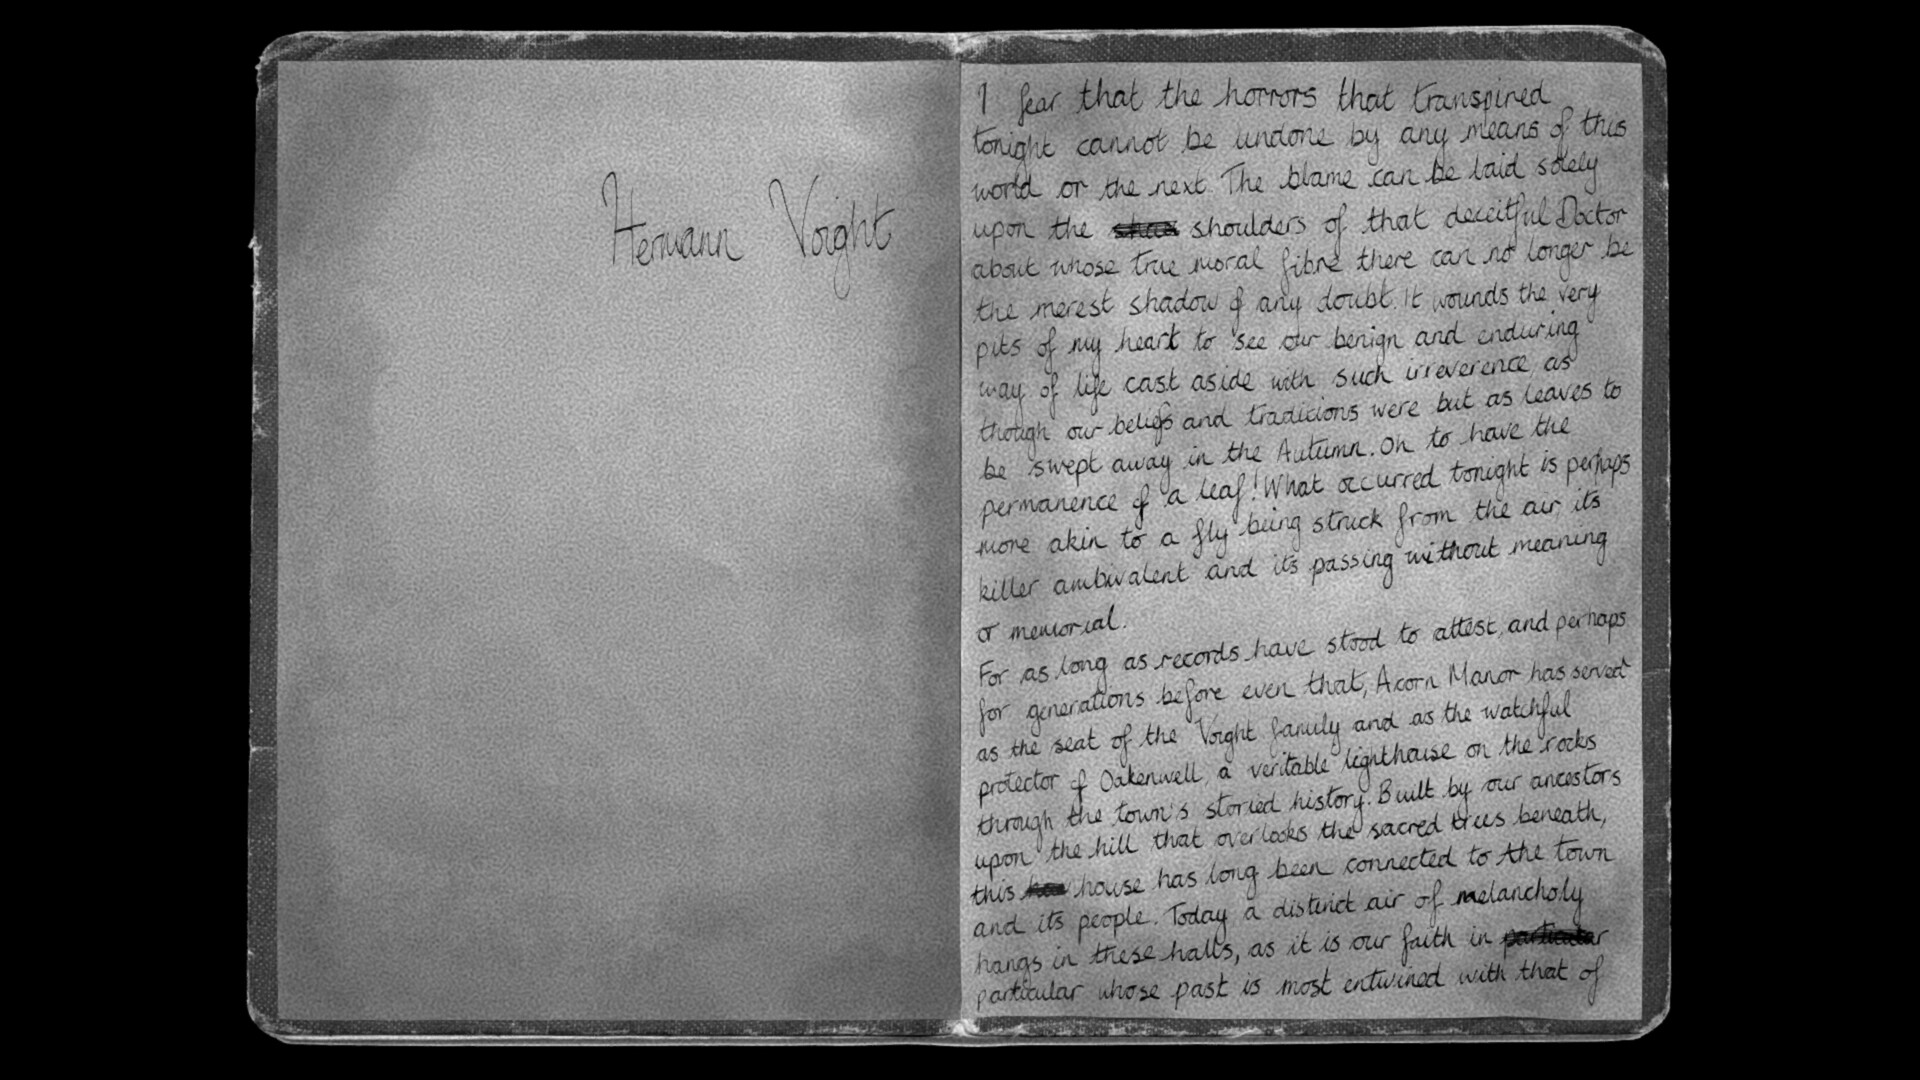 Hermann Voight
I fear that the horrors that transpired
tonight cannot be undone by any means of this
world or the next. The blame can be laid solely
upon the shoulders of that deceitful Doctor
about whose true moral fibre there can no longer be
the merest shadow of any doubt. It wounds the very
pits of my heart to see our benign and enduring
way of life cast aside with such irreverence as
though our beliefs and traditions were but as leaves to
be swept away in the Autumn. Oh to have the
permanence of a leaf! What occurred tonight is perhaps
more akin to a fly being struck from the air, its
killer ambivalent and its passing without meaning
or memorial.
For as long as records have stood to attest, and perhaps
for generations before even that, Acorn Manor has served
as the seat of the Voight family and as the watchful
protector of Oakenwell, a veritable lighthouse on the rocks
through the town's storied history. Built by our ancestors
upon the hill that overlooks the sacred trees beneath,
this house has long been connected to the town
and its people. Today a distinct air of melancholy
hangs in these halls, as it is our faith in particular
particular whose past is most entwined with that of